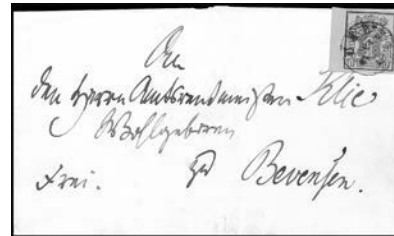 An
den Herrn Amtsrentmeister Klie
Wohlgeboren
Frei. zu Bevensen.